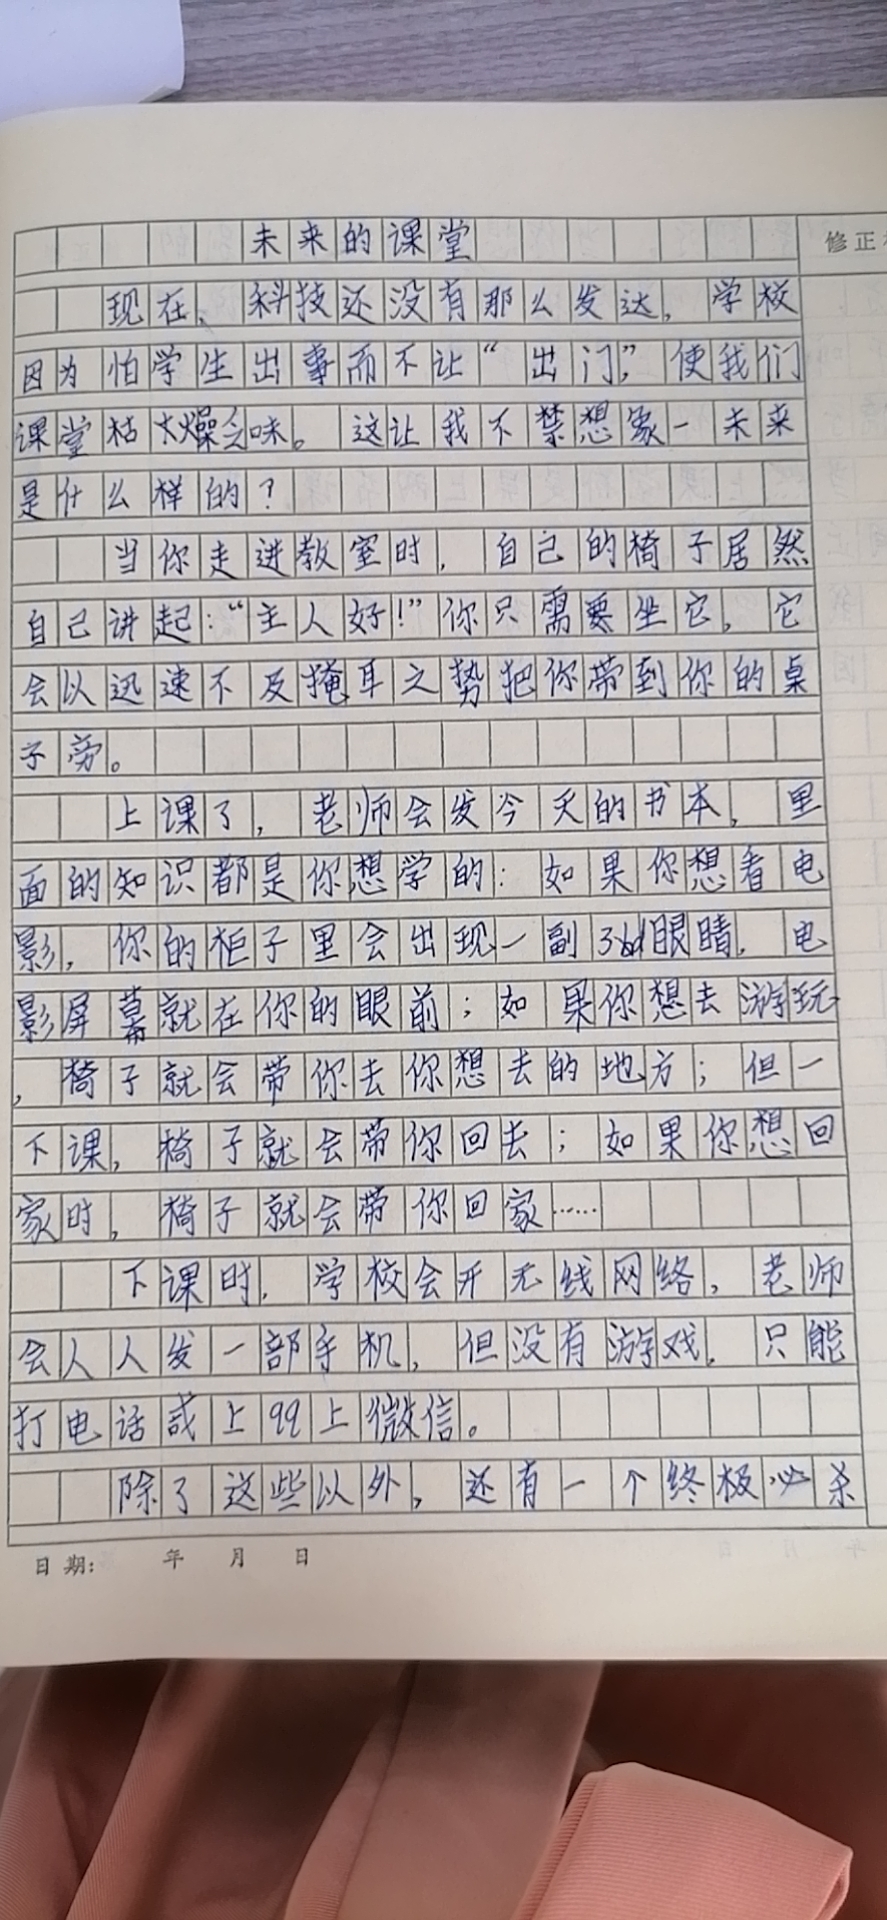 未来的课堂
修正
现在、科技还没有那么发达，学校
因为怕学生出事而不让“出门”，使我们
课堂枯燥乏味。这让我不禁想象一未来
是什么样的？
当你走进教室时，自己的椅子居然
自己讲起：“主人好！”你只需要坐它，它
会以迅速不及掩耳之势把你带到你的桌
子旁。
上课了，老师会发今天的书本，里
面的知识都是你想学的：如果你想看电
影，你的柜子里会出现一副3d眼睛，电
影屏幕就在你的眼前；如果你想去游玩
，椅子就会带你去你想去的地方；但一
下课，椅子就会带你回去；如果你想回
家时，椅子就会带你回家……
下课时，学校会开无线网络，老师
会人人发一部手机，但没有游戏，只能
打电话或上qq上微信。
除了这些以外，还有一个终极必杀
日期： 年 月 日